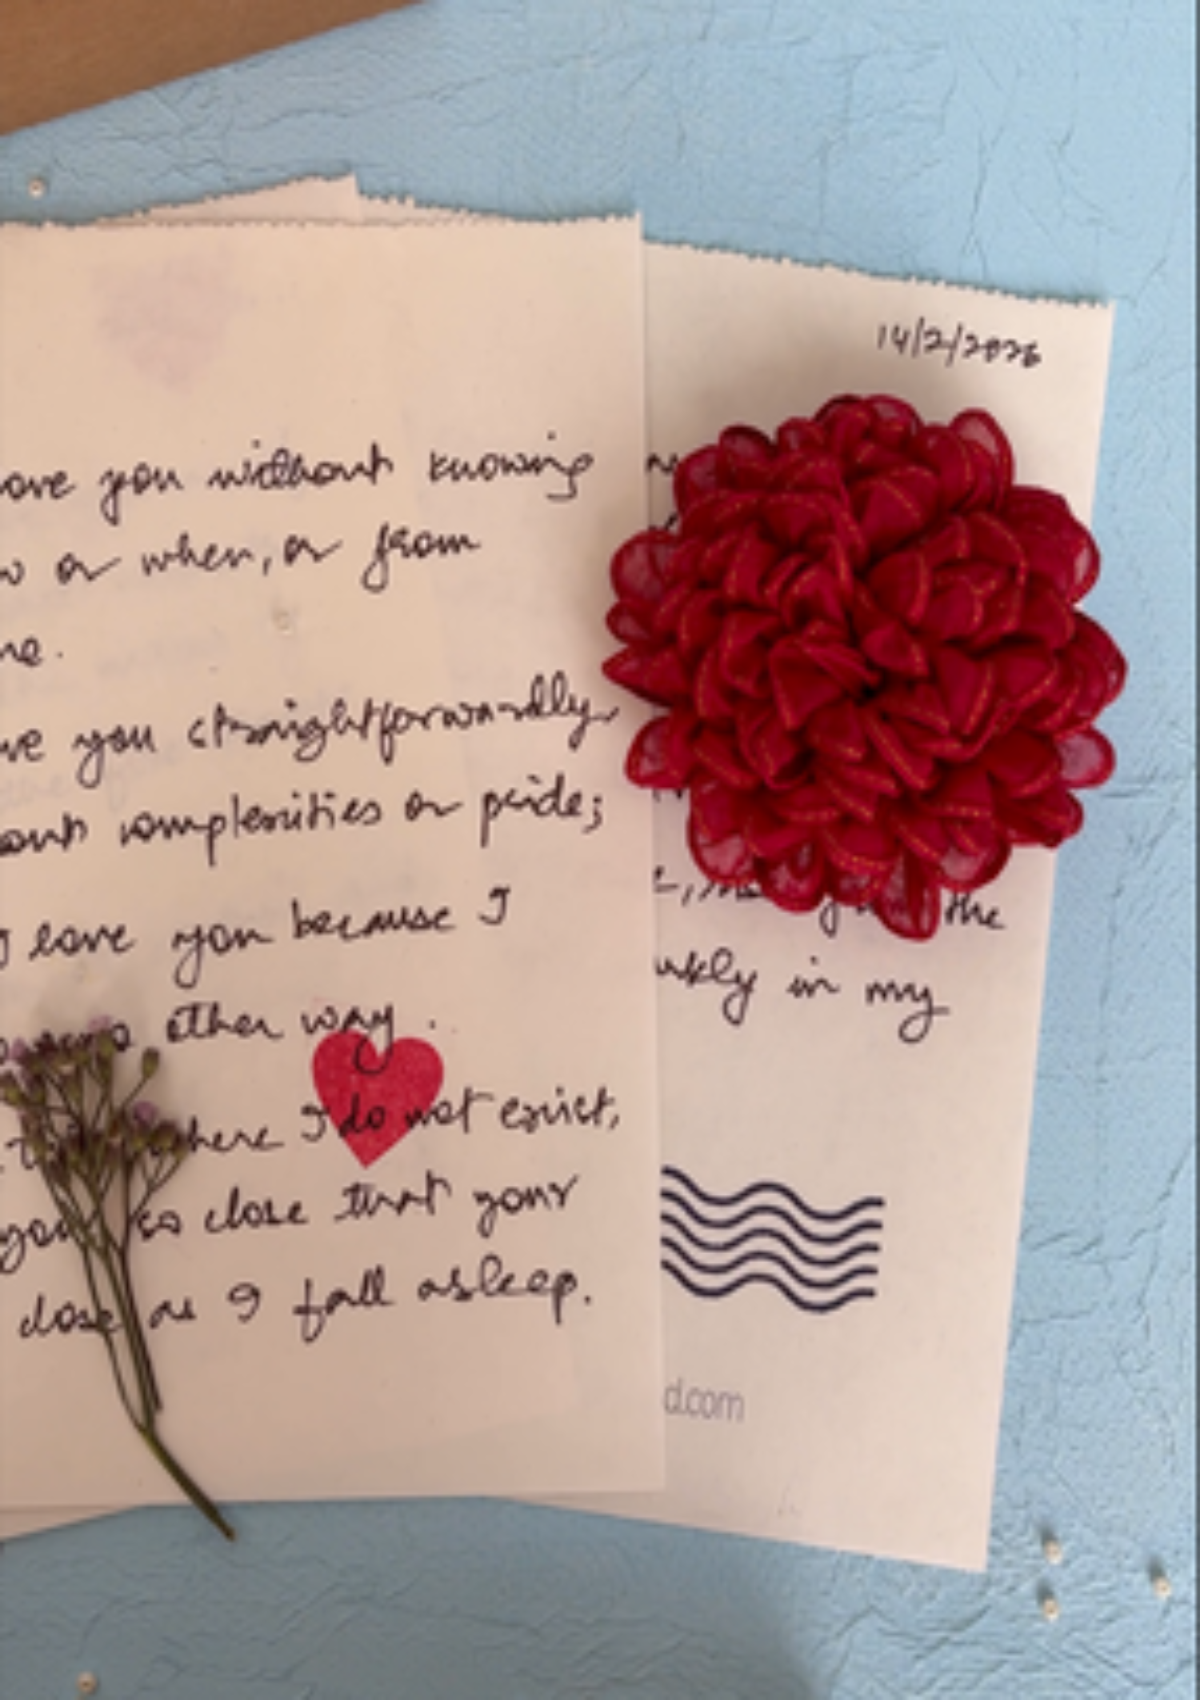 ove you without knowing
w or when, or from
ne.
ve you straightforwardly,
out complexities or pride;
I love you because I
other way.
where I do not exist,
you so close that your
close as I fall asleep.
14/2/2026
the
in my
d.com